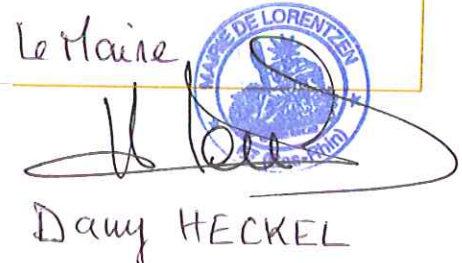 Le Maire
MAIRIE DE LORENTZEN
(Bas-Rhin)
Dany HECKEL